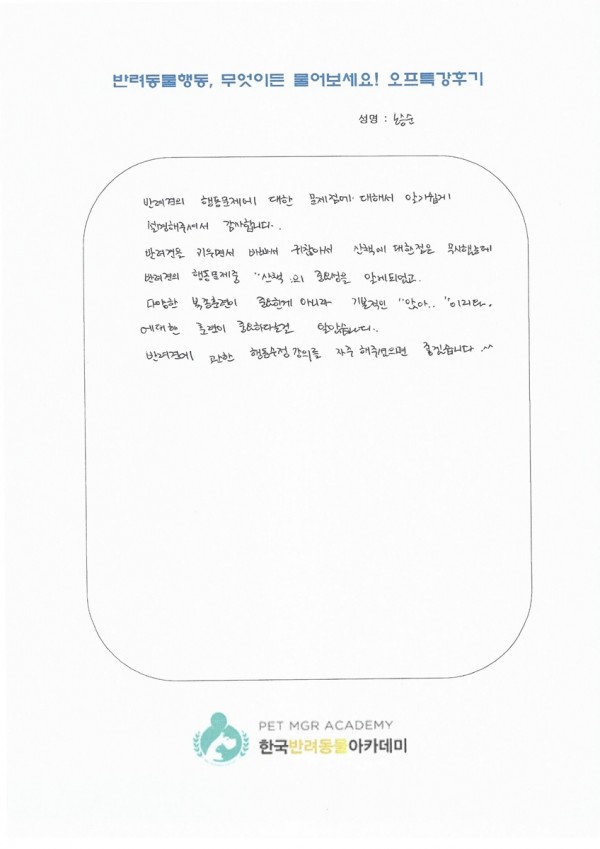 반려동물행동, 무엇이든 물어보세요! 오프특강후기
성명 : 노승순
반려견의 행동문제에 대한 문제점에 대해서 알기쉽게
설명해주셔서 감사합니다..
반려견을 키우면서 바빠서 귀찮아서 산책에 대한점을 무시했는데
반려견의 행동문제중 "산책"의 중요성을 알게되었고.
다양한 복종훈련이 중요한게 아니라 기본적인 "앉아.." 이리와.
에대한 훈련이 중요하다는걸 알았습니다..
반려견에 관한 행동수정 강의를 자주 해주셨으면 좋겠습니다 ^^
PET MGR ACADEMY
한국반려동물아카데미